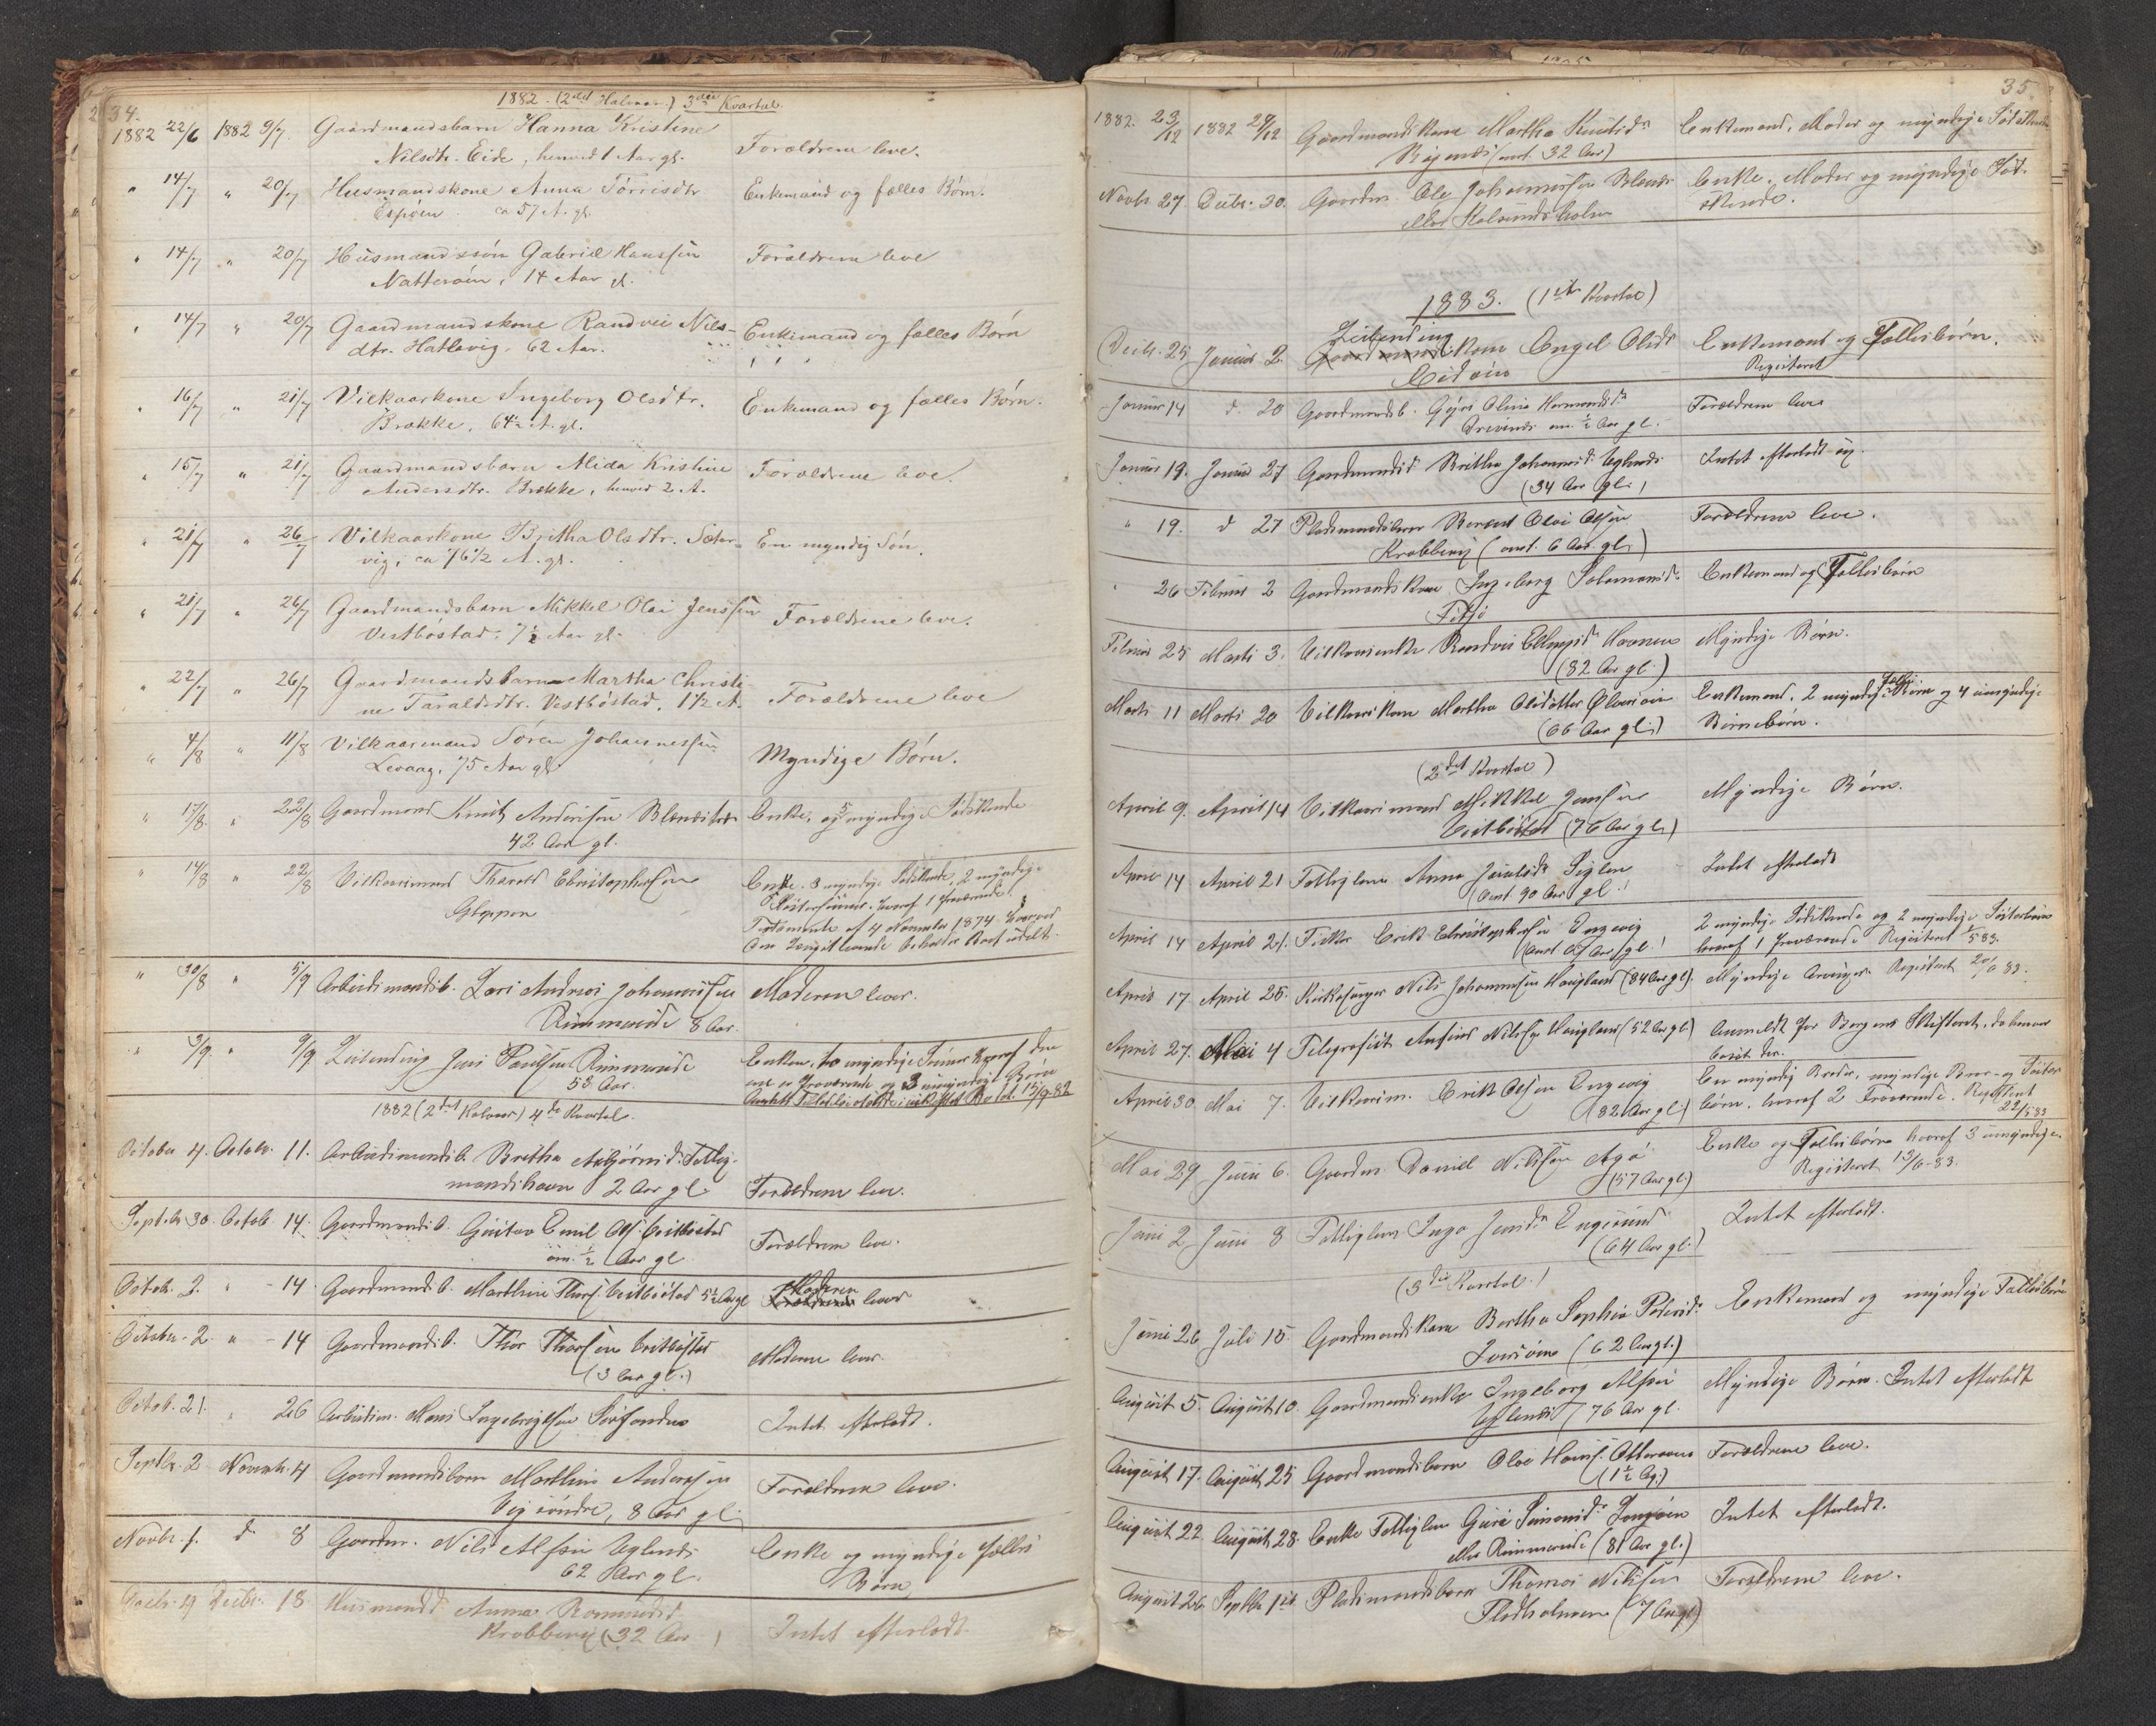 34.
1882. (2det Halvaar.) 3die Kvartal.
1882 22/6 1882 9/7. Gaardmandsbarn Hanna Kristine
Nilsdtr. Eide, henved 1 Aar gl. Forældrene leve.
" 14/7 " 20/7 Husmandskone Anna Tørrisdtr Enkemand og fælles Børn.
Espøen ca 57 A. gl.
" 14/7 " 20/7 Husmandssøn Gabriel Hanssen Forældrene leve
Natterøen, 14 Aar gl.
" 14/7 " 20/7 Gaardmandskone Randvei Nils- Enkemand og fælles Børn
dtr. Hatlevig, 62 Aar.
" 16/7 " 21/7 Vilkaarkone Ingeborg Olsdtr. Enkemand og fælles Børn.
Brække, 64½ A. gl.
" 15/7 " 21/7 Gaardmandsbarn Alida Kristine Forældrene leve.
Andersdtr. Brække, henved 2 A.
" 21/7 " 26/7 Vilkaarkone Britha Olsdtr. Sæter- En myndig Søn.
vig, ca 76½ A. gl.
" 21/7 " 26/7 Gaardmandsbarn Mikkel Olai Jenssen Forældrene leve.
Vestbøstad. 7½ Aar gl.
" 22/7 " 26/7 Gaardmandsbarn Martha Christi- Forældrene leve
ne Taraldsdtr. Vestbøstad, 1½ A.
" 4/8 " 11/8 Vilkaarmand Søren Johannessen Myndige Børn.
Levaag, 75 Aar gl.
" 17/8. " 22/8 Gaardmand Knut Andersen Enke, og 5 myndige Södskende
42 Aar gl.
" 14/8 " 22/8 Vilkaarsmand Tharald Christophersen Enke. 3 myndige Södskende, 2 myndige
Gloppen Søstersønner, hvoraf 1 fraværende.
Testamente af 4 November 1874 hvorved
den Længstlevende beholder Boet udelt.
" 30/8 " 5/9 Arbeidsmandsb. Lars Andreas Johannessen Moderen lever.
Rimmereide 8 Aar.
" 3/9. " 9/9 Leilending Jens Paulsen Rimmereide Enken, to myndige Sønner hvoraf den
53 Aar. ene er fraværende og 3 umyndige Børn
15/9-82
1882 (2det Halvaar) 4de Kvartal.
October 4. Octob. 11. Arbeidsmandsb. Britha Asbjørnsd. Fattig-
mandshavn 2 Aar gl. Forældrene leve.
Septbr 30. Octob. 14. Gaardmandsb. Gustav Emil Ols. Vestbøstad Forældrene leve.
om. ½ Aar gl
Octob. 2. " - 14. Gaardmandsb. Marthine Thors. Vestbøstad 5½ Aar gl Moderen lever
October 2. " - 14 Gaardmandsb. Thor Thorsen Vestbøstad Moderen lever.
(3 Aar gl.)
Octob. 21. " 26 Arbeidsm. Mons Ingebrigtsen Sørfonden Intet efterladt.
Septbr. 2 Novemb. 4 Gaardmandsbarn Marthin Andersen Forældrene leve.
Vig søndre, 8 Aar gl.
Novbr. 1. d. 8 Gaardm. Nils Alfsen Uglenes Enke og myndige fælles
62 Aar gl. Børn
Decbr. 18 Husmandsd. Anna Rasmusd. Intet efterladt
Krabbevig (32 Aar)
35.
1882. 23/12 1882 29/12 Gaardmandskone Martha Knutsdr Enkemand, Moder og myndige Södskende
(omt. 32 Aar)
Novbr 27 Decbr. 30. Gaardm. Ole Johannessen Enke, Moder og myndige Söd-
eller Kalsundsholm skende.
1883. (1ste Kvartal)
Decbr. 25 Januar 2. Leilendingkone Engel Olsdr Enkemand og Fællesbörn.
Eidøen Registeret
Januar 14 d. 20 Gaardmandsb. Gjuri Oline Hermandsdr Forældrene leve
om. ½ Aar gl.
Januar 19. Januar 27 Gaardmandsd. Britha Johannesd. Uglenes Intet efterladt sig.
(34 Aar gl.)
" 19. d 27 Pladsmandsbarn Berent Olai Olsen Forældrene leve.
Krabbevig (omt. 6 Aar gl.)
" 26 Februar 2 Gaardmandskone Ingeborg Salamonsdr Enkemand og Fællesbörn
Fitje
Februar 25 Marts 3. Vilkaarsenke Randvei Ellingsdr Havnen Myndige Børn.
(82 Aar gl.)
Marts 11 Marts 20 Vilkaarskone Martha Olsdatter Enkemand. 2 myndige Fælles Børn og 4 umyndige
(66 Aar gl.) Børnebörn.
(2det Kvartal)
April 9. April 14 Vilkaarsmand Mikkel Jenssen Myndige Børn.
Vestbøstad (76 Aar gl.)
April 14 April 21 Fattiglem Anna Intet efterladt
(omt 90 Aar gl.)
April 14 April 21. Fisker Erik Christophersen Engevig 2 myndige Södskende og 2 myndige Søsterbørn
hvoraf 1 fraværende Registeret 1/5 83.
April 17 April 26. Kirkesanger Nils Johannessen Haugland (84 Aar gl). Myndige Arvinger. Registeret 83.
April 27. Mai 4 Telegrafist Anfind Nilssen Haugland (52 Aar gl) Anmeldt for Bergens Skifteret, da han var
bosat der.
April 30 Mai 7. Vilkaarsm. Erik Olsen Engevig En myndig Broder, myndige Bror- og Søster
(82 Aar gl.) börn, hvoraf 2 Fraværende. Registeret
22/5 83
Mai 29 Juni 6. Gaardm. Daniel Nilssen Enke og Fællesbörn hvoraf 3 umyndige.
(57 Aar gl.) Registeret 13/6-83.
Juni 2 Juni 8 Fattiglem Inga Jensdr Engesund Intet efterladt.
(64 Aar gl.)
(3die Kvartal.)
Juni 26 Juli 15. Gaardmandskone Bertha Sophia Pedersdr Enkemand og myndige Fællesbörn
(62 Aar gl.)
August 5. August 10. Gaardmandsenke Ingeborg Alfsen Myndige Børn. Intet efterladt
Uglenes (76 Aar gl.
August 17. August 25 Gaardmandsbarn Olai Hans. Forældrene leve.
(1½ Aar)
August 22 August 28. Enke Fattiglem Guri Simonsdr Intet efterladt.
eller Rimmereide (81 Aar gl.)
August 26 Septbr 1ste Pladsmandsbarn Thomas Nilssen Forældrene leve.
Fladholmen (7 Aar gl)